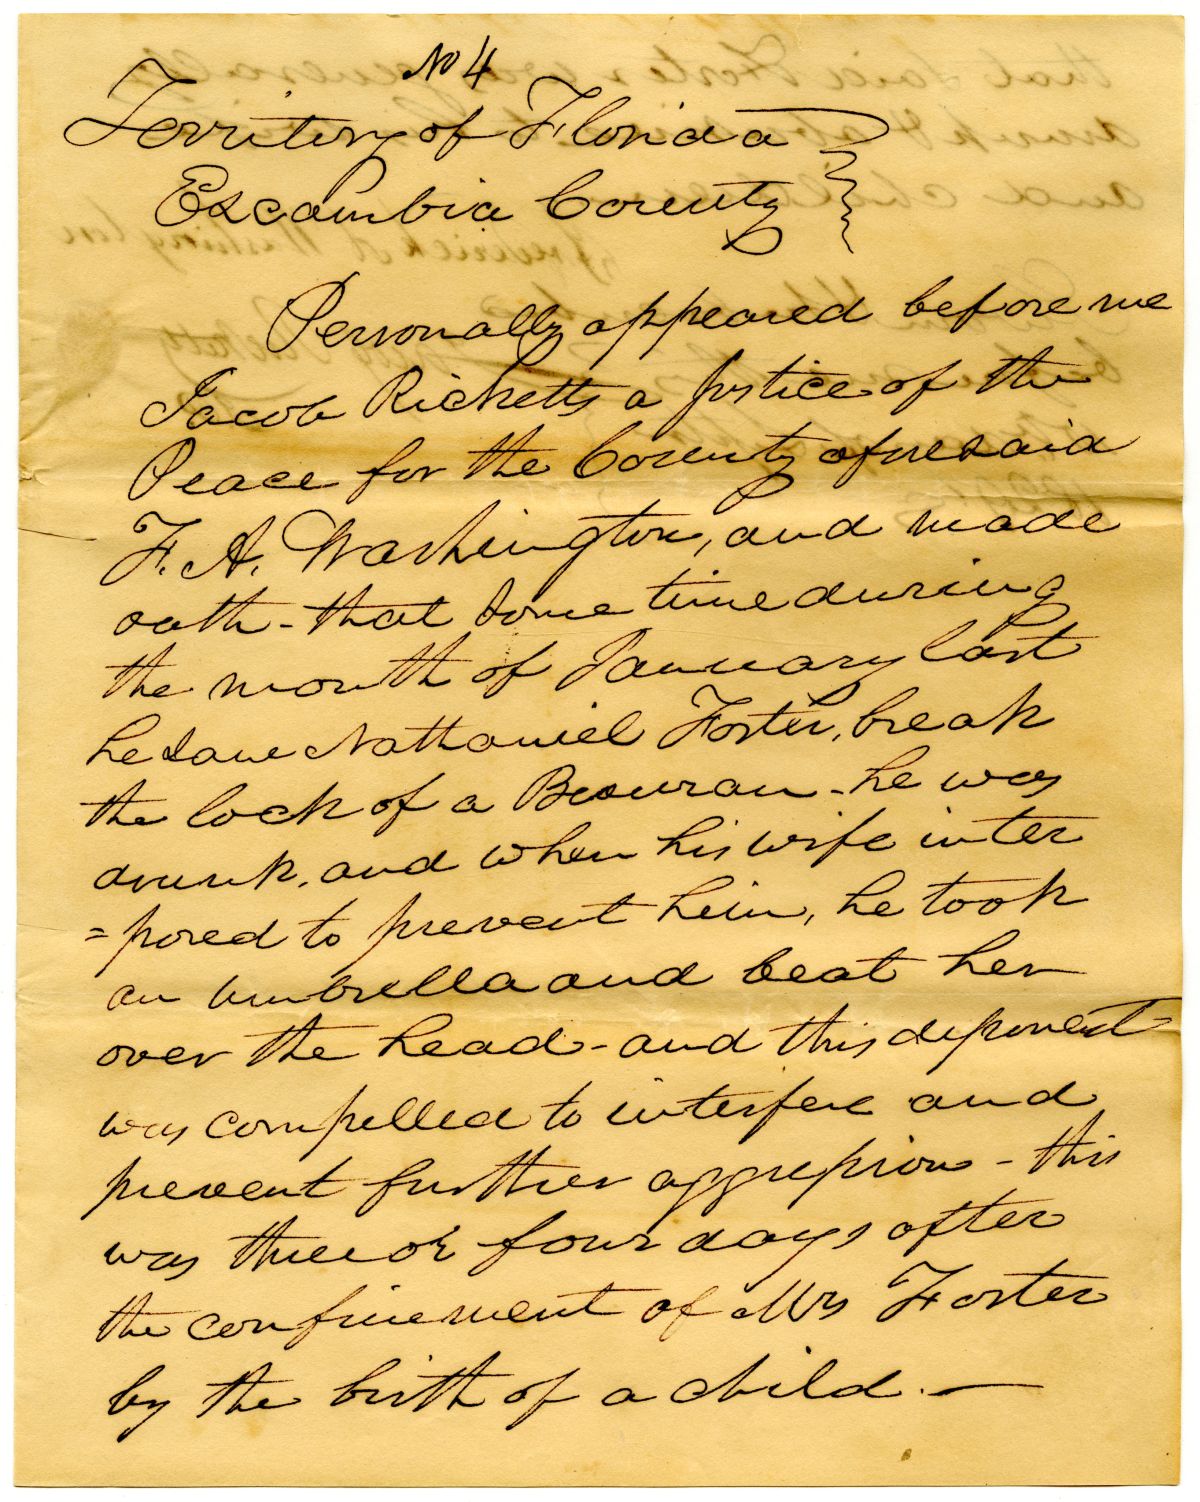 No 4
Territory of Florida
Escambia County
Personally appeared before me
Jacob Ricketts a Justice of the
Peace for the County aforesaid
F. A. Washington, and made
oath - that some time during
the month of January last
he saw Nathaniel Foster, break
the lock of a Beaurau - he was
drunk, and when his wife inter
=posed to prevent him, he took
an umbrella and beat her
over the head - and this deponent
was compelled to interfere and
prevent further aggression - this
was three or four days after
the confinement of Mrs Foster
by the birth of a child. —